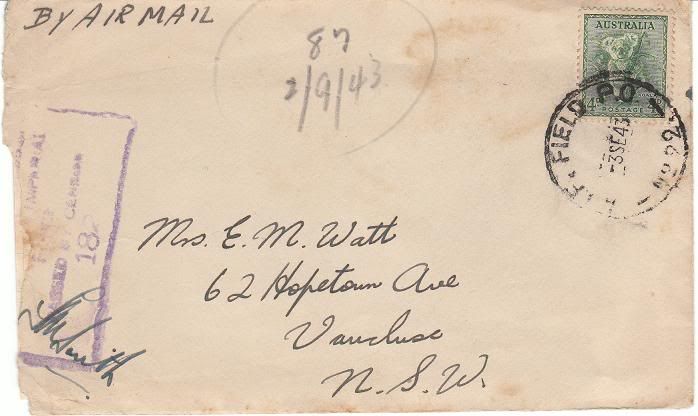 BY AIR MAIL
87
2/9/43
AUSTRALIA
4D
POSTAGE
FIELD P.O
-3SE43
IMPERIAL
PASSED BY CENSOR
182
Mrs. E. M. Watt
62 Hopetoun Ave
Vaucluse
N.S.W.